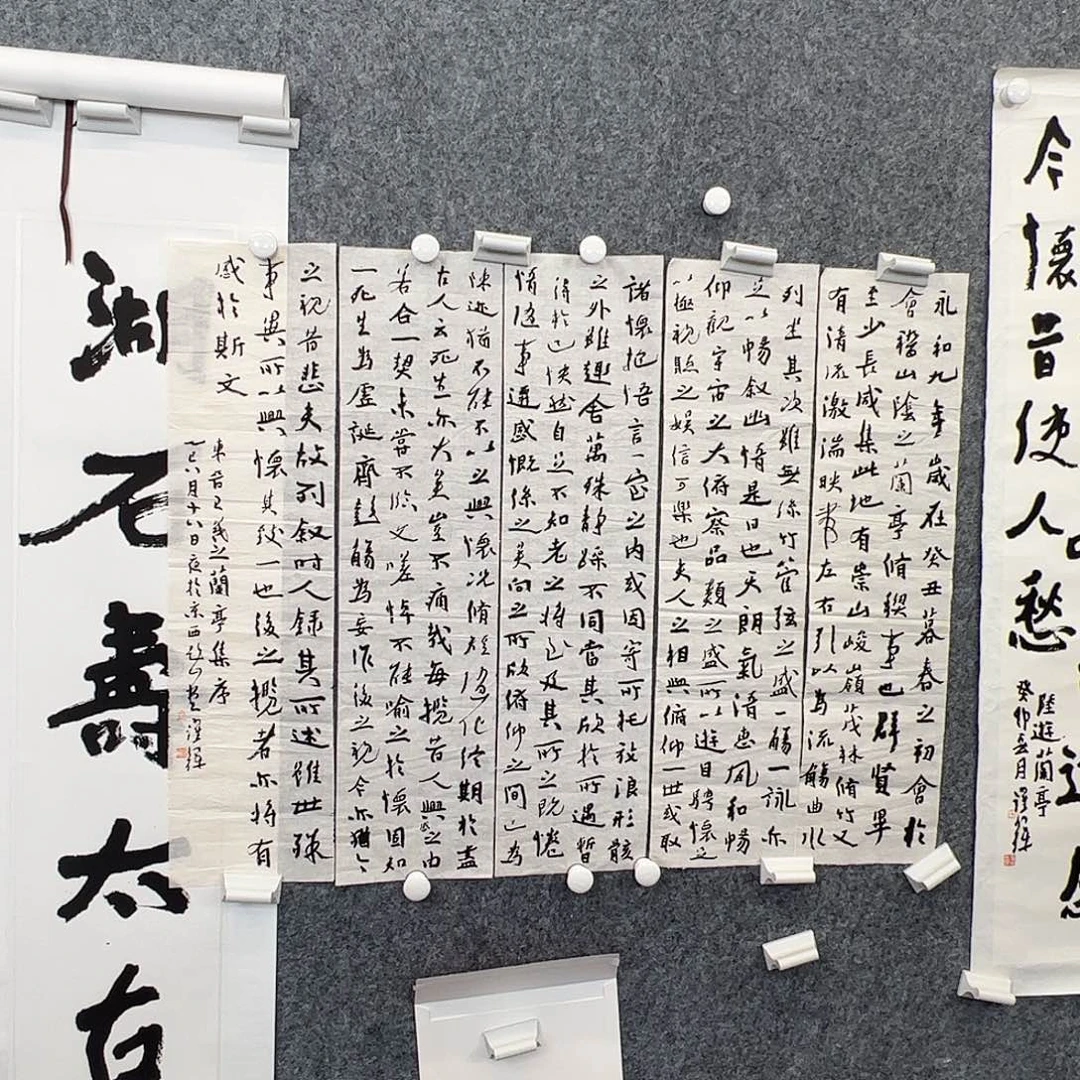 今懷昔使人愁
陸遊蘭亭
癸卯五月
永和九年歲在癸丑暮春之初會於
會稽山陰之蘭亭脩禊事也群賢畢
至少長咸集此地有崇山峻嶺茂林脩竹又
有清流激湍映帶左右引以為流觴曲水
列坐其次雖無絲竹管弦之盛一觴一詠亦
足以暢敘幽情是日也天朗氣清惠風和暢
仰觀宇宙之大俯察品類之盛所以遊目騁懷足
以極視聽之娛信可樂也夫人之相與俯仰一世或取
諸懷抱悟言一室之內或因寄所托放浪形骸
之外雖趣舍萬殊靜躁不同當其欣於所遇暫
得於己快然自足不知老之將至及其所之既倦
情隨事遷感慨係之矣向之所欣俯仰之間已為
陳迹猶不能不以之興懷況脩短隨化終期於盡
古人云死生亦大矣豈不痛哉每攬昔人興感之由
若合一契未嘗不臨文嗟悼不能喻之於懷固知
一死生為虛誕齊彭殤為妄作後之視今亦猶今
之視昔悲夫故列敘時人錄其所述雖世殊
事異所以興懷其致一也後之攬者亦將有
感於斯文
東晉王羲之蘭亭集序
乙巳六月十八日夜於京西
湖石壽太古